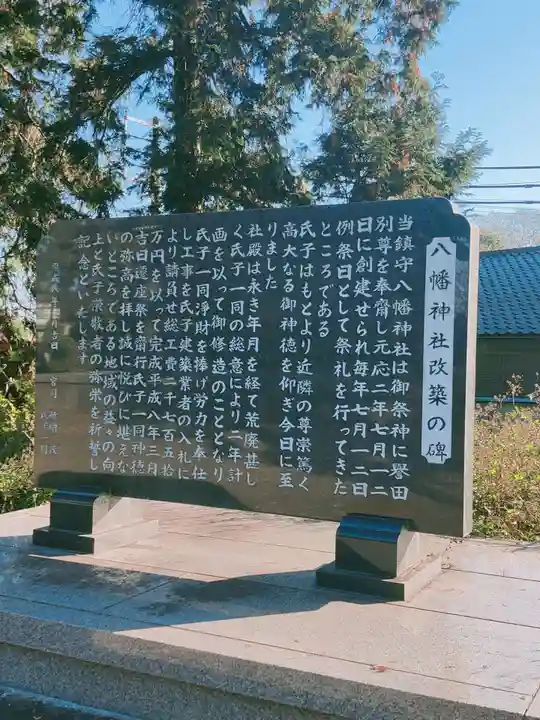 八幡神社改築の碑
当鎮守八幡神社は御祭神に誉田
別尊を奉齋し元応二年七月十二
日に創建せられ毎年七月十二日
例祭日として祭礼を行ってきた
ところである
氏子はもとより近隣の尊崇篤く
高大なる御神徳を仰ぎ今日に至
りました
社殿は永き年月を経て荒廃甚し
く氏子一同の総意により二年計
画を以って御修造のこととなり
氏子一同浄財を捧げ労力を奉仕
し工事を氏子建築業者の入札に
より請負せ総工費二千七百五拾
万円を以って完成平成八年三月
吉日遷座祭を齋行氏子一同神徳
の弥高を拝し誠に悦びに堪えな
いところである地域の益々の向
上と氏子崇敬者の弥栄を祈誓し
記念といたします